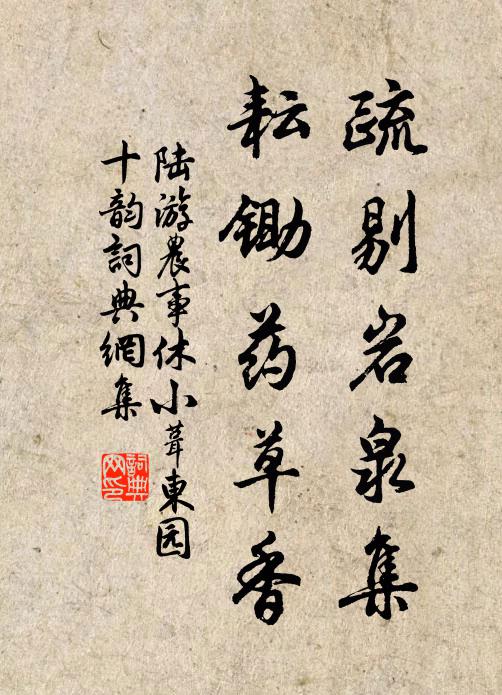 疏剔岩泉集
耘锄药草香
陆游農事休小葺東园
十韵詞典網集
詞典網印